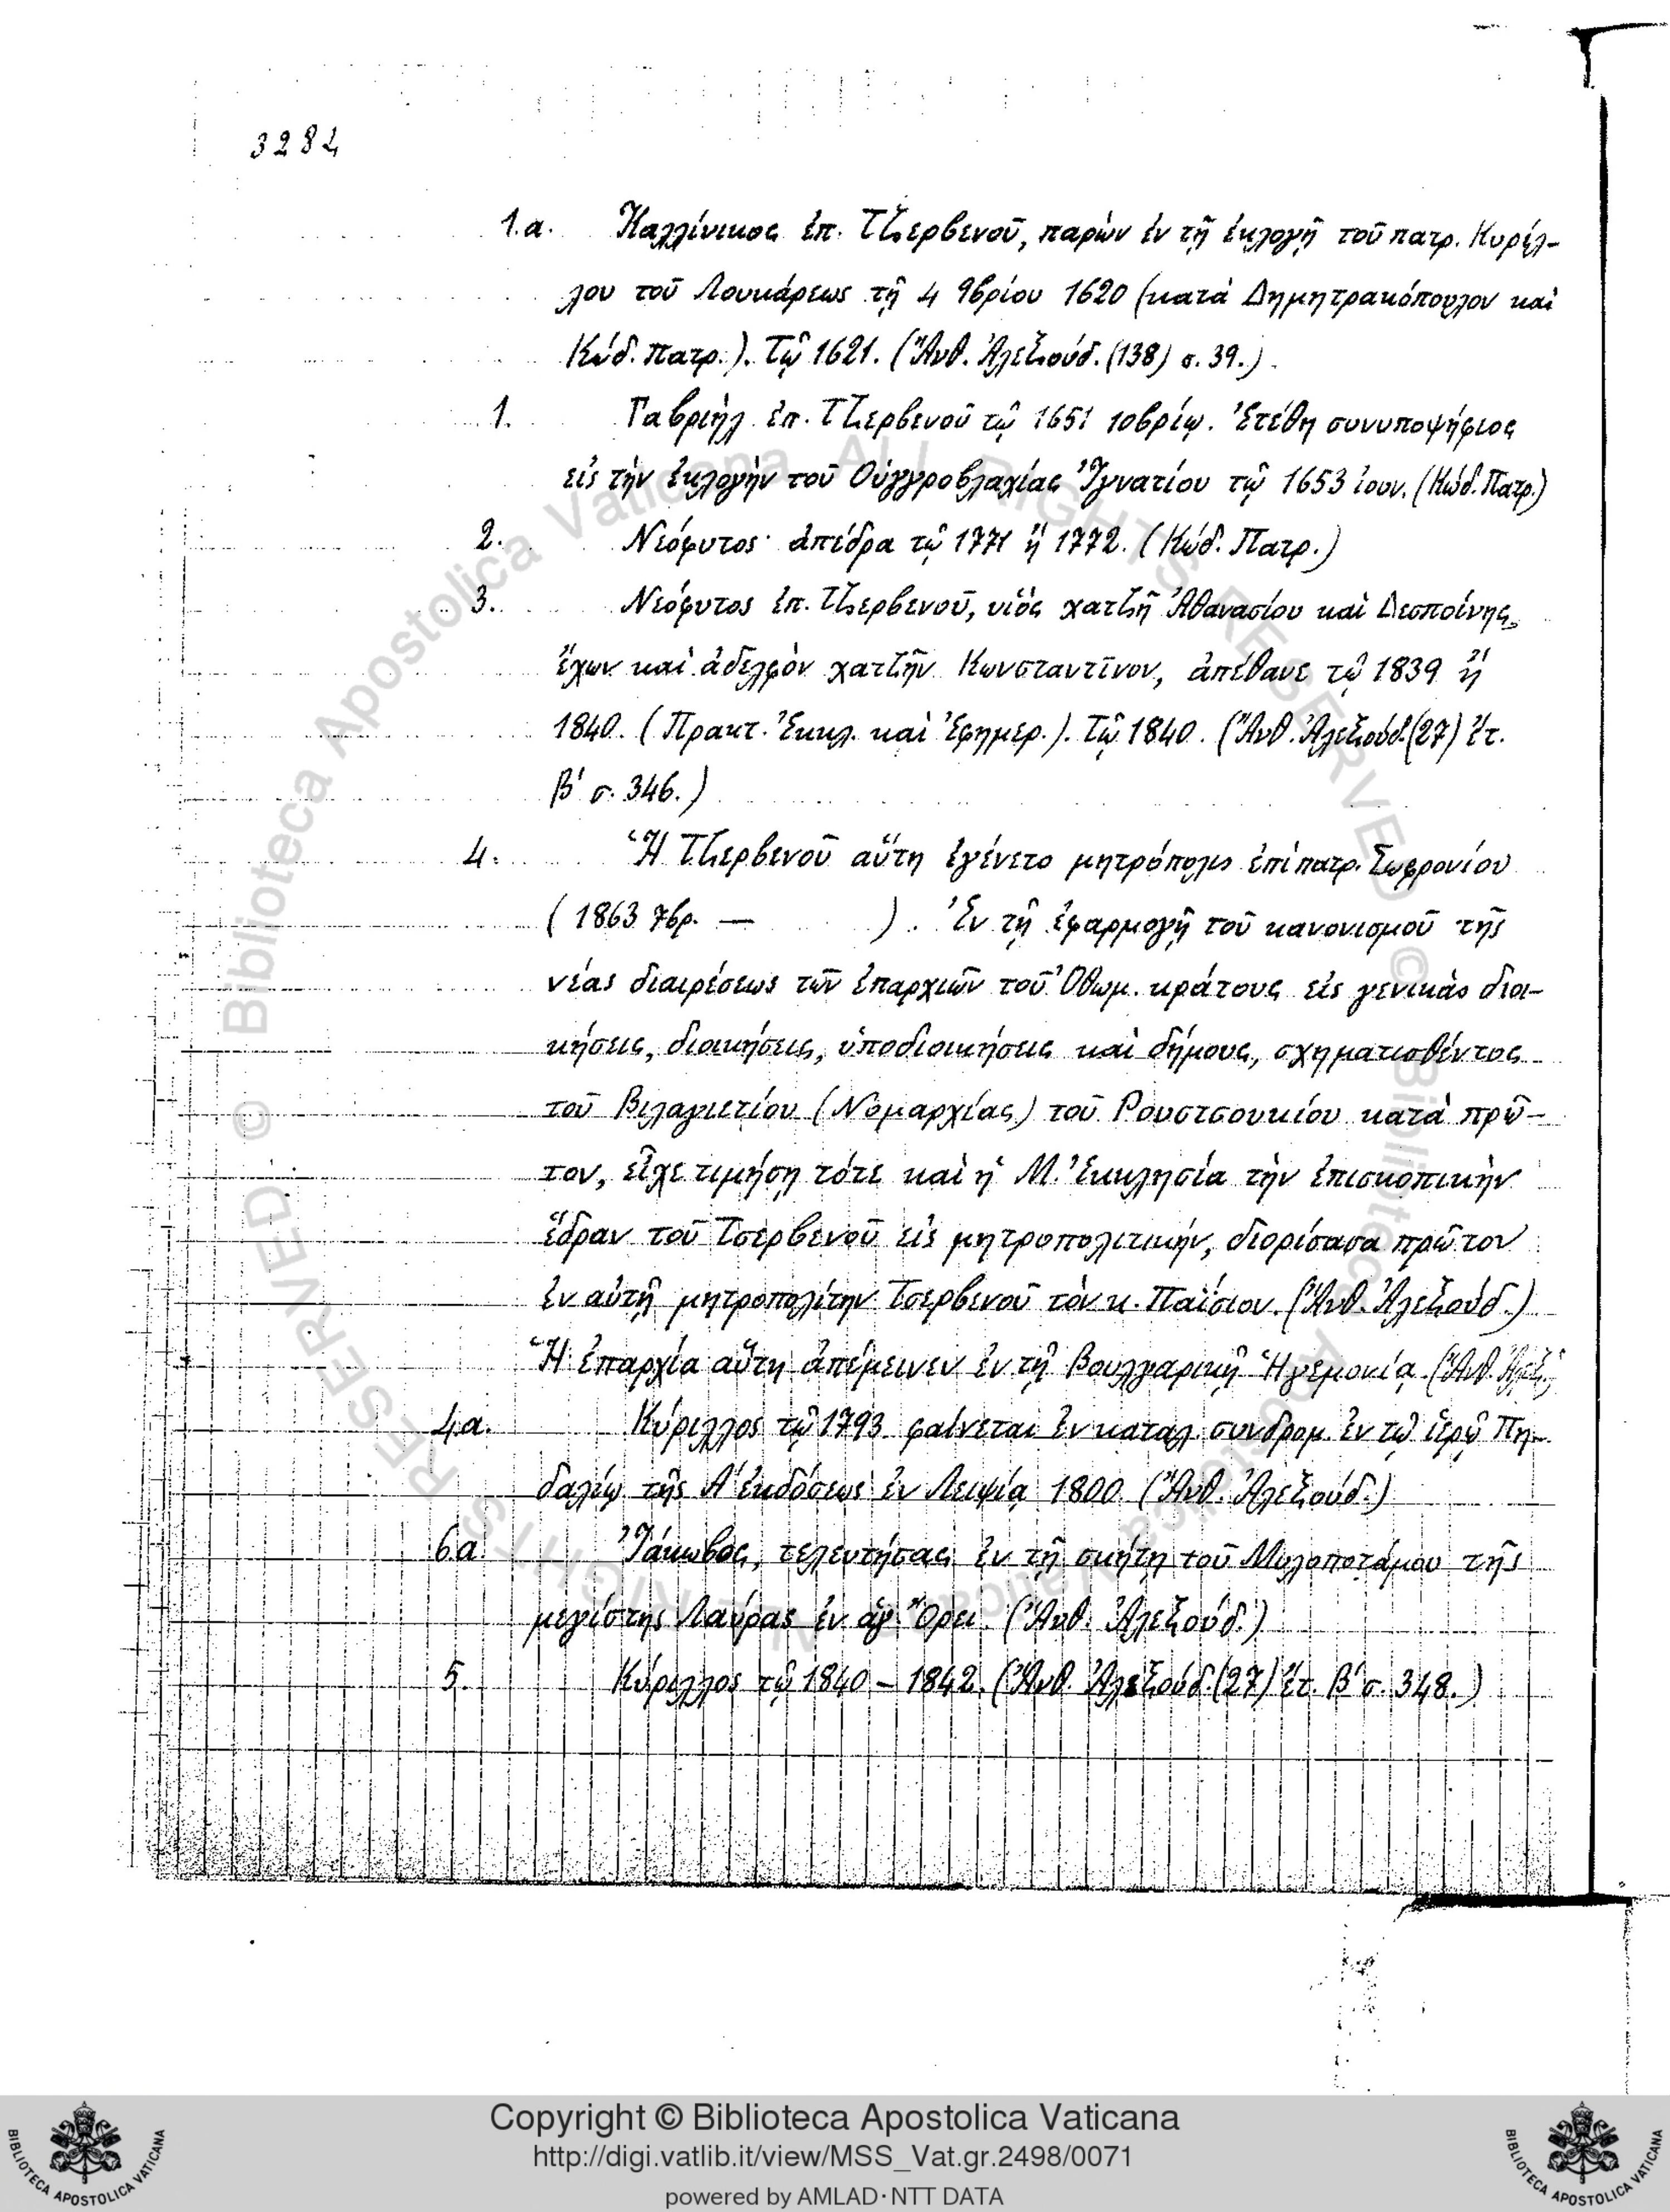 3284
1.α. Καλλίνικος ἐπ. Τζερβενοῦ, παρὼν ἐν τῇ ἐκλογῇ τοῦ πατρ. Κυρίλ-
λου τοῦ Λουκάρεως τῇ 4 9βρίου 1620 (κατὰ Δημητρακόπουλον καὶ
Κώδ. Πατρ.). Τῷ 1621. (Ἄνθ. Ἀλεξούδ. (138) σ. 39.)
1. Γαβριὴλ ἐπ. Τζερβενοῦ τῷ 1651 10βρίῳ. Ἐτέθη συνυποψήφιος
εἰς τὴν ἐκλογὴν τοῦ Οὑγγροβλαχίας Ἰγνατίου τῷ 1653 ἰουν. (Κώδ. Πατρ.)
2. Νεόφυτος· ἀπέδρα τῷ 1771 ἢ 1772. (Κώδ. Πατρ.)
3. Νεόφυτος ἐπ. Τζερβενοῦ, υἱὸς χατζῆ Ἀθανασίου καὶ Δεσποίνης,
ἔχων καὶ ἀδελφὸν χατζῆν Κωνσταντῖνον, ἀπέθανε τῷ 1839 ἢ
1840. (Πρακτ. Ἐκκλ. καὶ Ἐφημερ.). Τῷ 1840. (Ἄνθ. Ἀλεξούδ. (27) ἔτ.
Β′ σ. 346.)
4. Ἡ Τζερβενοῦ αὕτη ἐγένετο μητρόπολις ἐπὶ πατρ. Σωφρονίου
(1863 7βρ. — ). Ἐν τῇ ἐφαρμογῇ τοῦ κανονισμοῦ τῆς
νέας διαιρέσεως τῶν ἐπαρχιῶν τοῦ Ὀθωμ. κράτους εἰς γενικὰς διοι-
κήσεις, διοικήσεις, ὑποδιοικήσεις καὶ δήμους, σχηματισθέντος
τοῦ Βιλαγιετίου (Νομαρχίας) τοῦ Ρουστσουκίου κατὰ πρῶ-
τον, εἶχε τιμήσῃ τότε καὶ ἡ Μ. Ἐκκλησία τὴν ἐπισκοπικὴν
ἕδραν τοῦ Τσερβενοῦ εἰς μητροπολιτικήν, διορίσασα πρῶτον
ἐν αὐτῇ μητροπολίτην Τσερβενοῦ τὸν κ. Παΐσιον. (Ἄνθ. Ἀλεξούδ.)
Ἡ ἐπαρχία αὕτη ἀπέμεινεν ἐν τῇ Βουλγαρικῇ Ἡγεμονίᾳ. (Ἄνθ. Ἀλεξ.)
4α. Κύριλλος τῷ 1793 φαίνεται ἐν καταλ. συνδρομ. ἐν τῷ ἱερῷ Πη-
δαλίῳ τῆς Α′ ἐκδόσεως ἐν Λειψίᾳ 1800. (Ἄνθ. Ἀλεξούδ.)
6α. Ἰάκωβος, τελευτήσας ἐν τῇ σκήτῃ τοῦ Μυλοποτάμου τῆς
μεγίστης Λαύρας ἐν ἁγ. Ὄρει. (Ἄνθ. Ἀλεξούδ.)
5. Κύριλλος τῷ 1840 – 1842. (Ἄνθ. Ἀλεξούδ. (27) ἔτ. Β′ σ. 348.)
© Biblioteca Apostolica Vaticana ALL RIGHTS RESERVED
Copyright © Biblioteca Apostolica Vaticana
http://digi.vatlib.it/view/MSS_Vat.gr.2498/0071
powered by AMLAD·NTT DATA
BIBLIOTECA APOSTOLICA VATICANA
BIBLIOTECA APOSTOLICA VATICANA